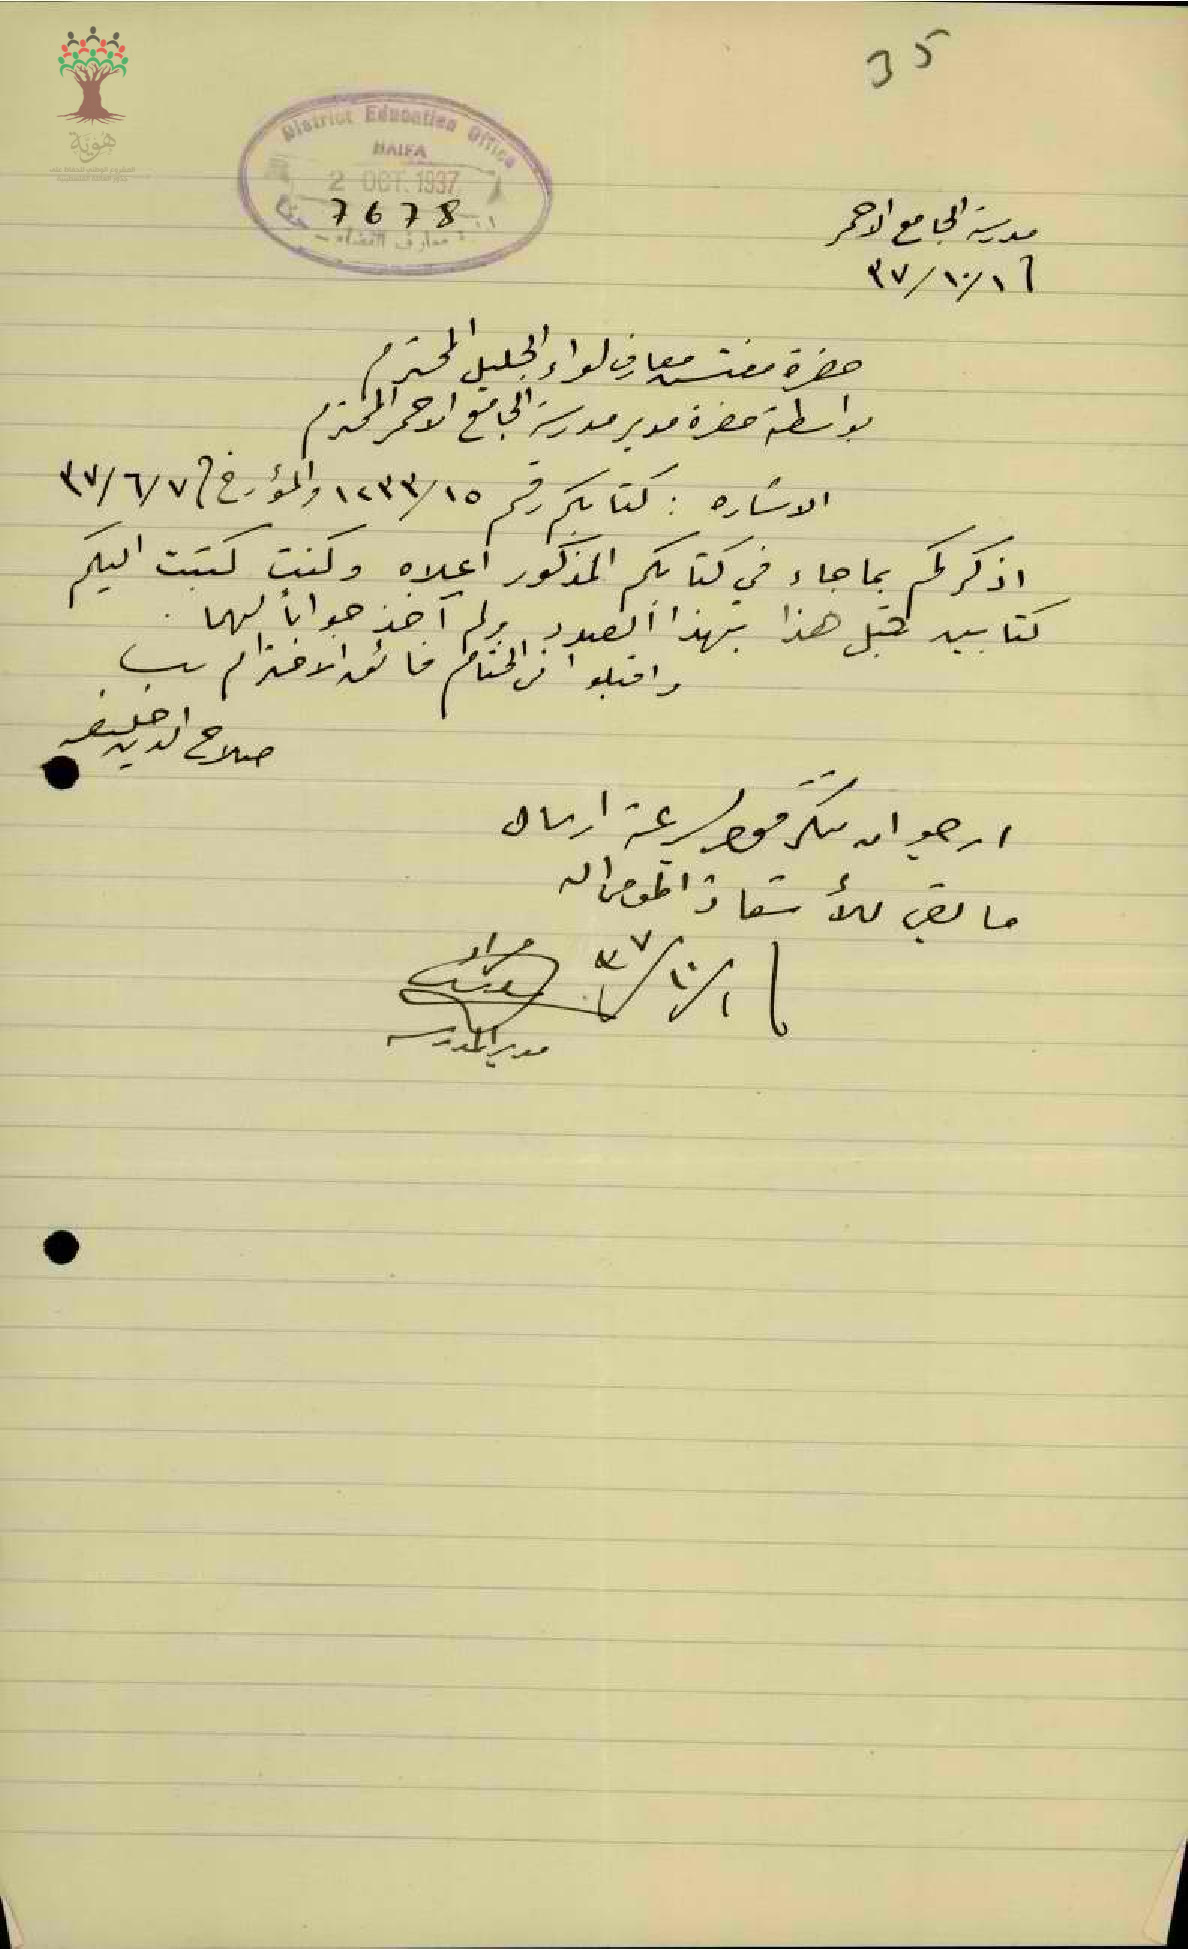 35
هوية
District Education Office
HAIFA
2 OCT. 1937
7678
مدرسة الجامع الاحمر
٣٧/١٠/١
حضرة مفتش معارف لواء الجليل المحترم
بواسطة حضرة مدير مدرسة الجامع الاحمر المحترم
الاشاره : كتابكم رقم ١٢٣٣/١٥ والمؤرخ ٣٧/٦/٧
اذكركم بما جاء في كتابكم المذكور اعلاه وكنت كتبت اليكم
كتابين قبل هذا بهذا الصدد ولم آخذ جواباً لهما .
واقبلوا في الختام فائق الاحترام
صلاح الدين خليفه
ارجو ان تتكرموا بسرعة ارسال
ما بقي للأستاذ
٣٧/١٠/١
مدير المدرسه